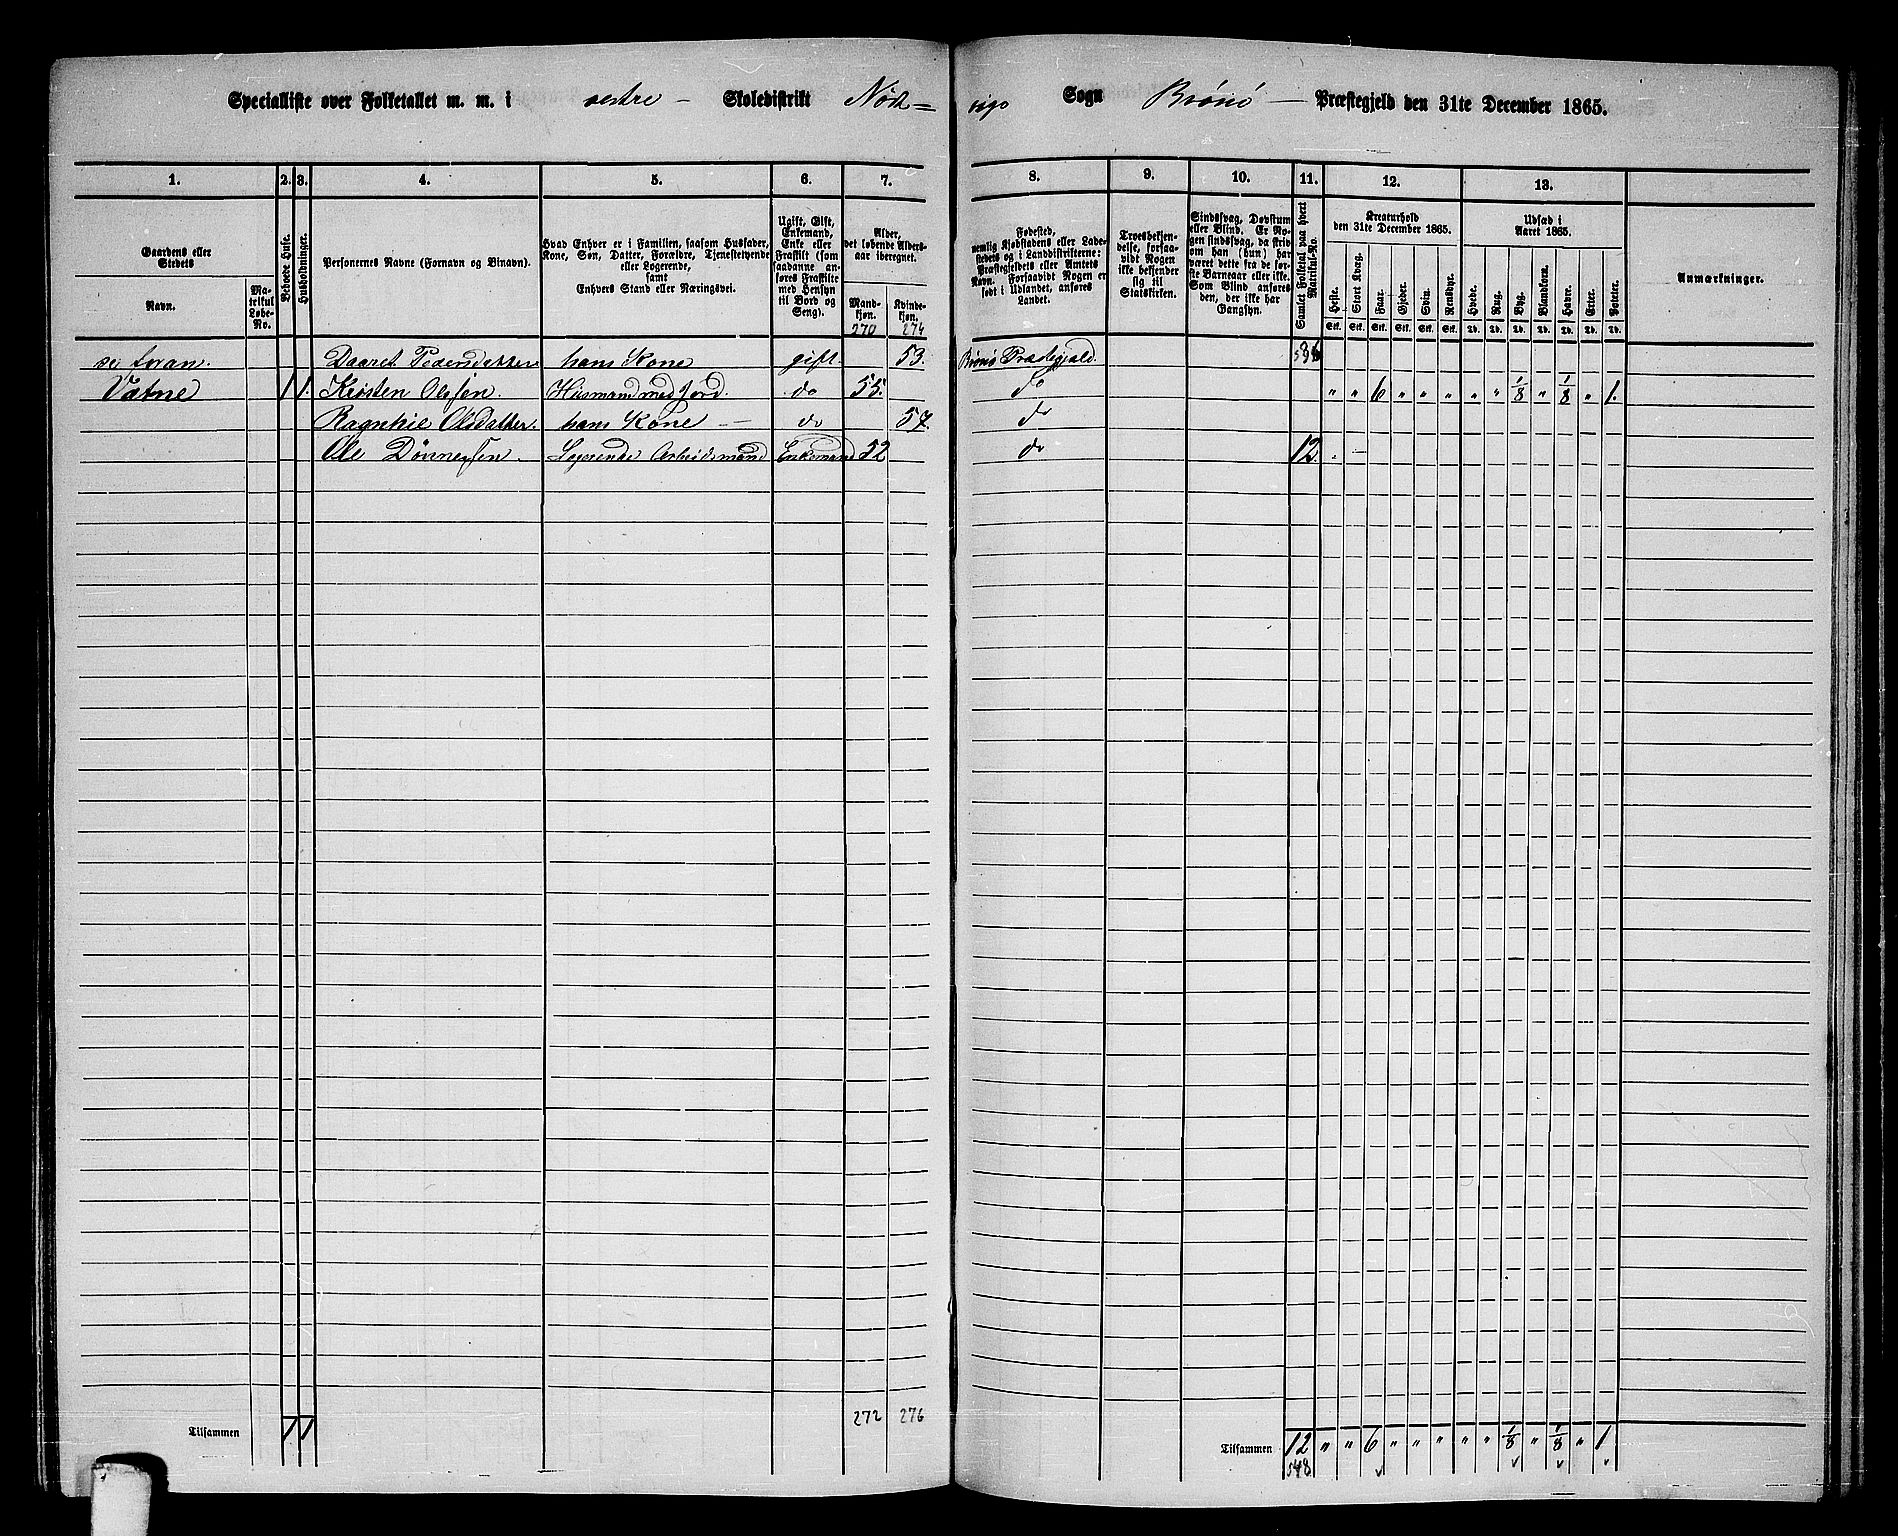 Specialliste over Folketallet m. m. i vestre – Skoledistrikt Nøt=
vigs Sogn Brønø – Præstegjeld den 31te December 1865.
1. 2. 3. 4. 5. 6. 7.
8. 9. 10. 11. 12. 13.
Gaardens eller Stedets
Navn.
Matrikul Løbe-No.
Beboede Huse.
Husholdninger.
Personernes Navne (Fornavn og Binavn).
Hvad Enhver er i Familien, saasom Husfader, Kone, Søn, Datter, Forældre, Tjenestetyende eller Logerende,
samt
Enhvers Stand eller Næringsvei.
Ugift, Gift, Enkemand, Enke eller Fraskilt (som saadanne anføres Fraskilte med Hensyn til Bord og Seng).
Alder, det løbende Aldersaar iberegnet.
Mandkjøn.
Kvindekjøn.
270 274
Fødested,
nemlig Kjøbstadens eller Ladestedets og i Landdistrikterne: Præstegjeldets eller Amtets Navn. Forsaavidt Nogen er født i Udlandet, anføres Landet.
Troesbekjendelse, forsaavidt Nogen ikke bekjender sig til Statskirken.
Sindssvag, Døvstum eller Blind. Er Nogen sindssvag, da skrives om han (hun) har været dette fra de første Barneaar eller ikke. Som Blind anføres den, der ikke har Gangsyn.
Samlet Folketal paa hvert Matrikul-No.
Kreaturhold
den 31te December 1865.
Heste. Stort Kvæg. Faar. Gjeder. Svin. Rensdyr.
Stk. Stk. Stk. Stk. Stk. Stk.
Udsæd i
Aaret 1865.
Hvede. Rug. Byg. Blandkorn. Havre. Erter. Poteter.
Td. Td. Td. Td. Td. Td. Td.
Anmærkninger.
se foran. Daaret Pedersdatter hans Kone gift. 53. Brønø Præstegjeld.
Vatne 1 1. Kirsten Olsen Husmand med Jord. do 55. do " " 6 " " " " " 1/8 " 1/8 " 1.
Ragnhie Olsdatter. hans Kone – do 57. do
Ole Dønnesen. Logerende Arbeidsmand Enkemand 52 do 12.
Tilsammen 1 1 272 276
Tilsammen 12 " " 6 " " " " " 1/8 " 1/8 " 1
548